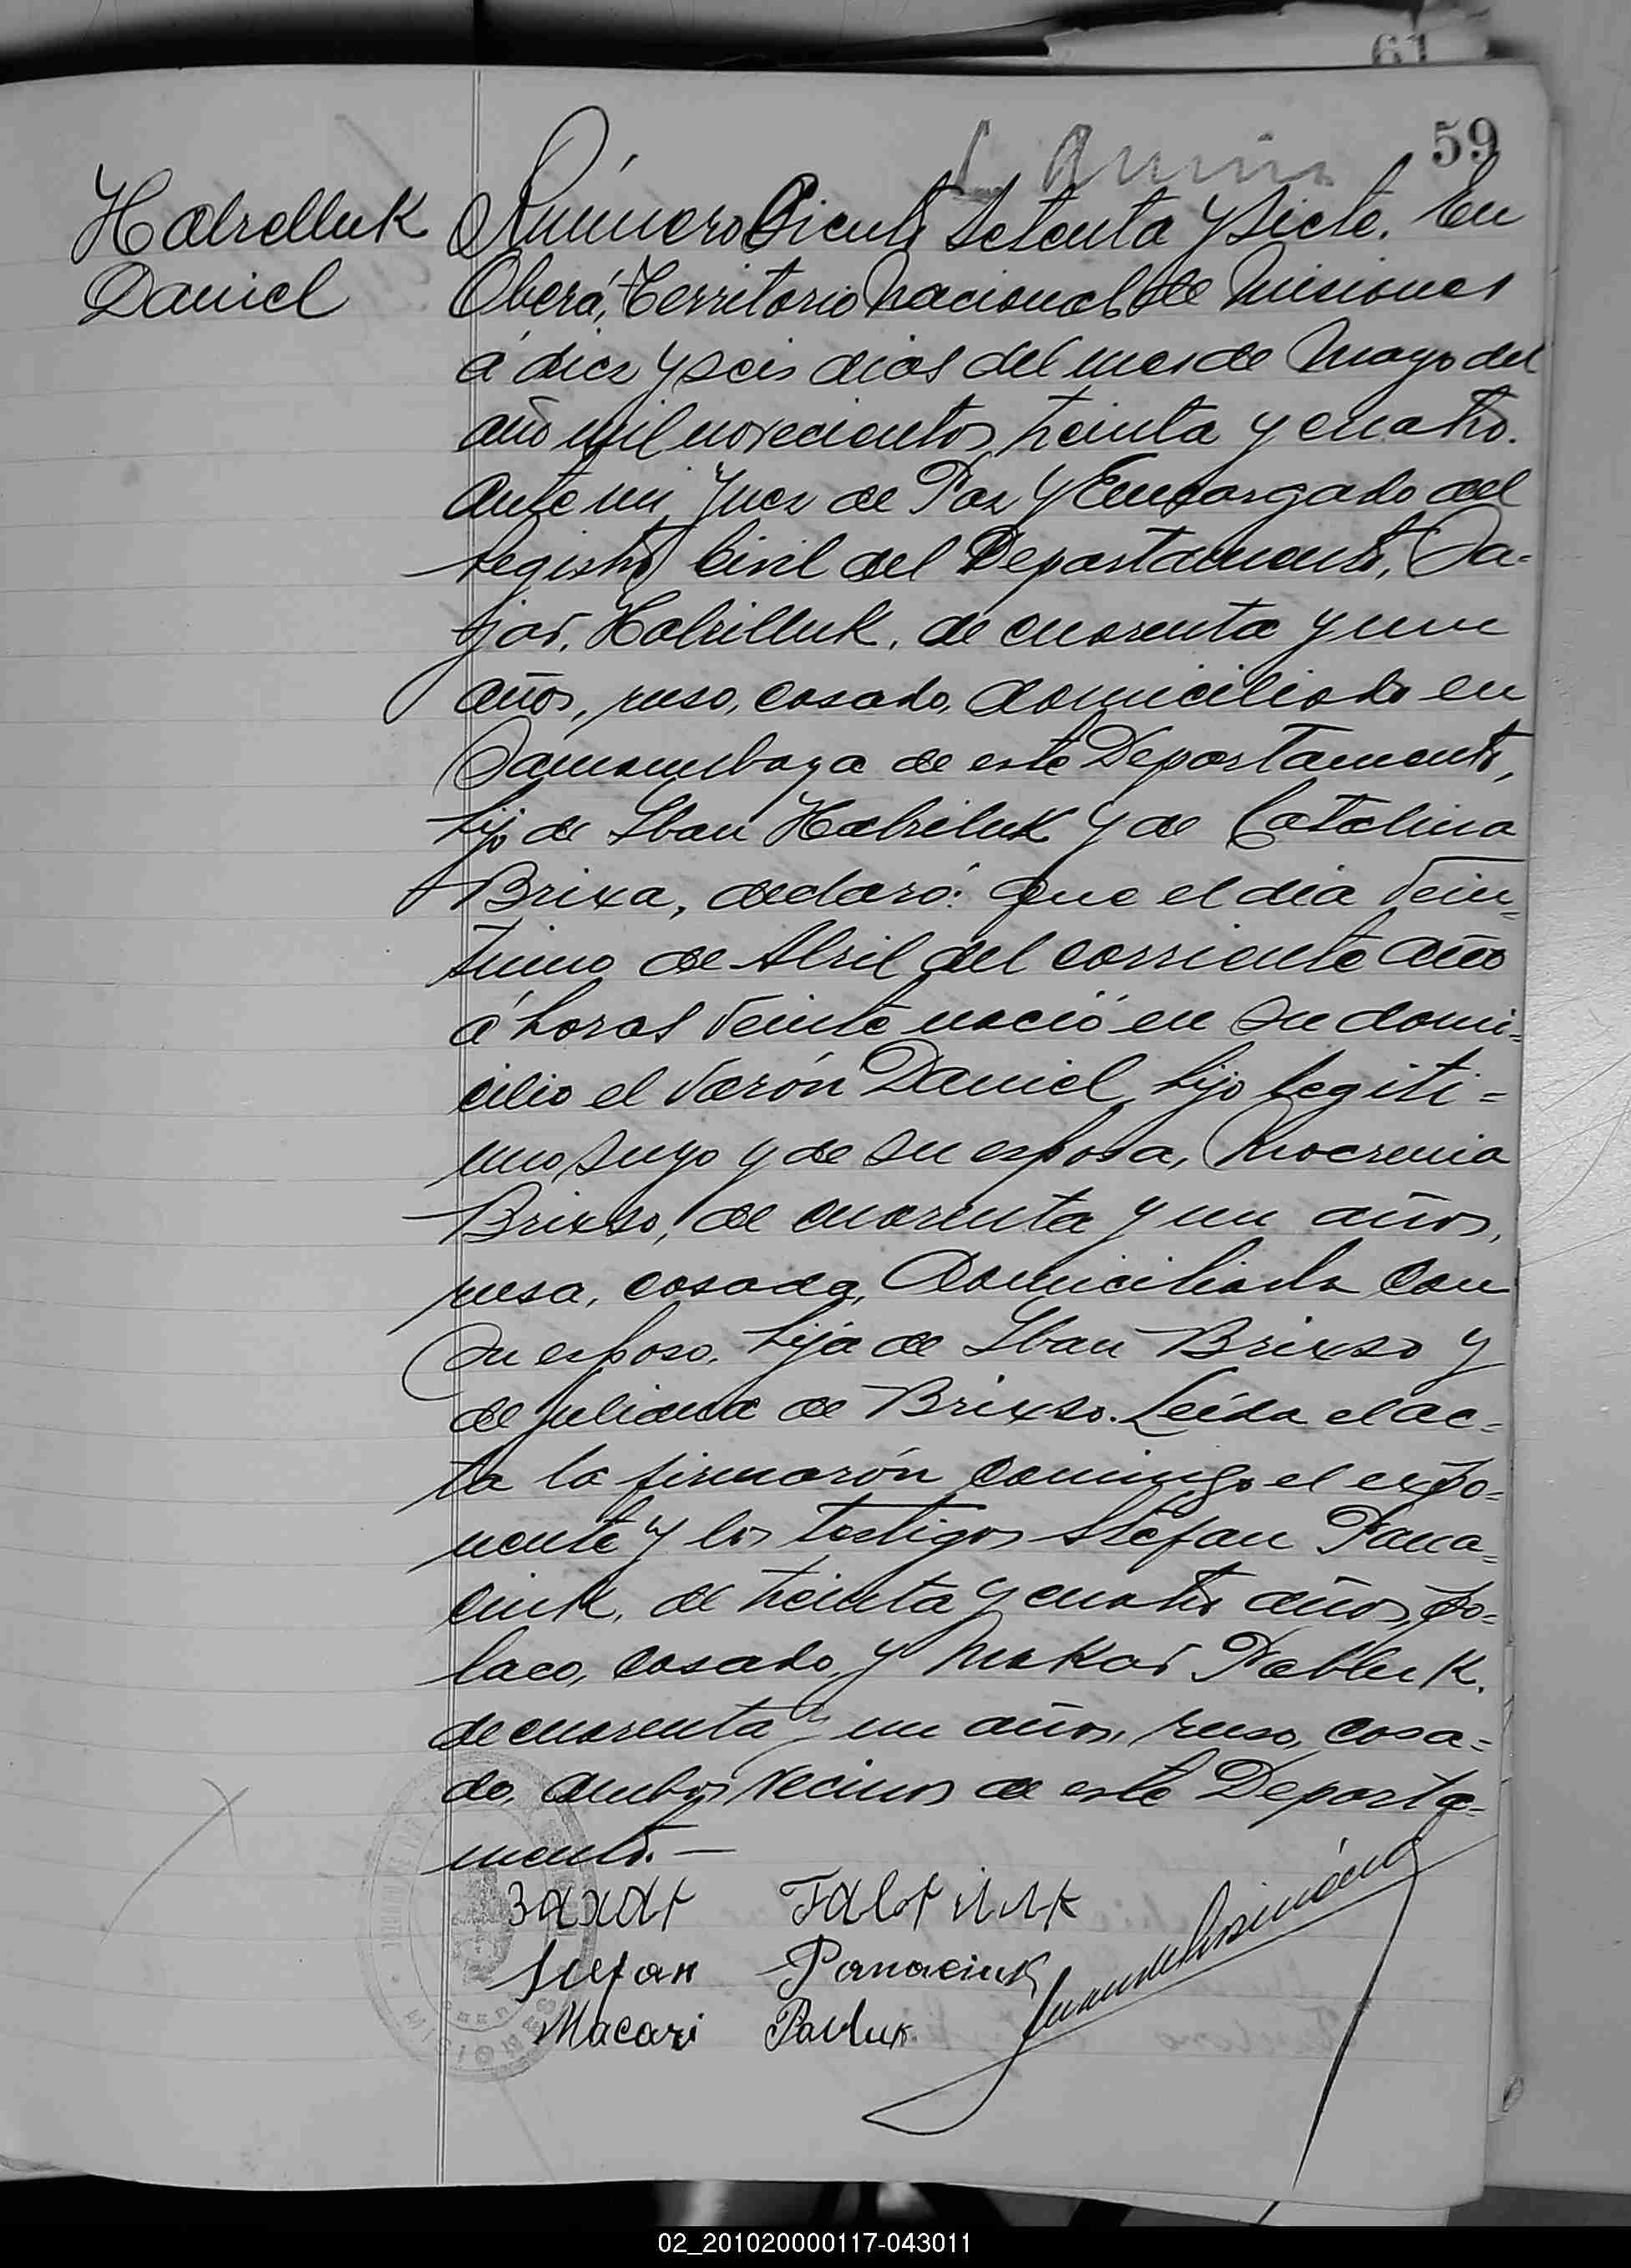 61
59
Halrelluk
Daniel
Número Ciento setenta y siete. En
Oberá, Territorio Nacional de Misiones
á diez y seis dias del mes de Mayo del
año mil novecientos treinta y cuatro.
Ante mi Juez de Paz y Encargado del
Registro Civil del Departamento, Sa-
jar, Halrilluk, de cuarenta y un
años, ruso, casado, domiciliado en
Samambaya de este Departamento,
hijo de Iban Halriluk y de Catalina
Brixa, declaró: Que el dia vein=
tiuno de Abril del corriente año
á horas veinte nació en su domi=
cilio el varón Daniel, hijo legiti=
mo suyo y de su esposa,
Brixso, de cuarenta y un años,
rusa, casada, domiciliada con
su esposo, hija de Iban Brixso y
de Juliana de Brixso. Leída el ac=
ta la firmarón conmigo el expo=
nente y los testigos Stefan Pana=
ciuk, de treinta y cuatro años, po=
laco, casado, y Makar Pabluk,
de cuarenta y un años, ruso, casa=
do, ambos vecinos de este Departa=
mento.—
Захар Габрилук
Stefan Panaciuk
Macari Pavluk
MISIONES
02_201020000117-043011